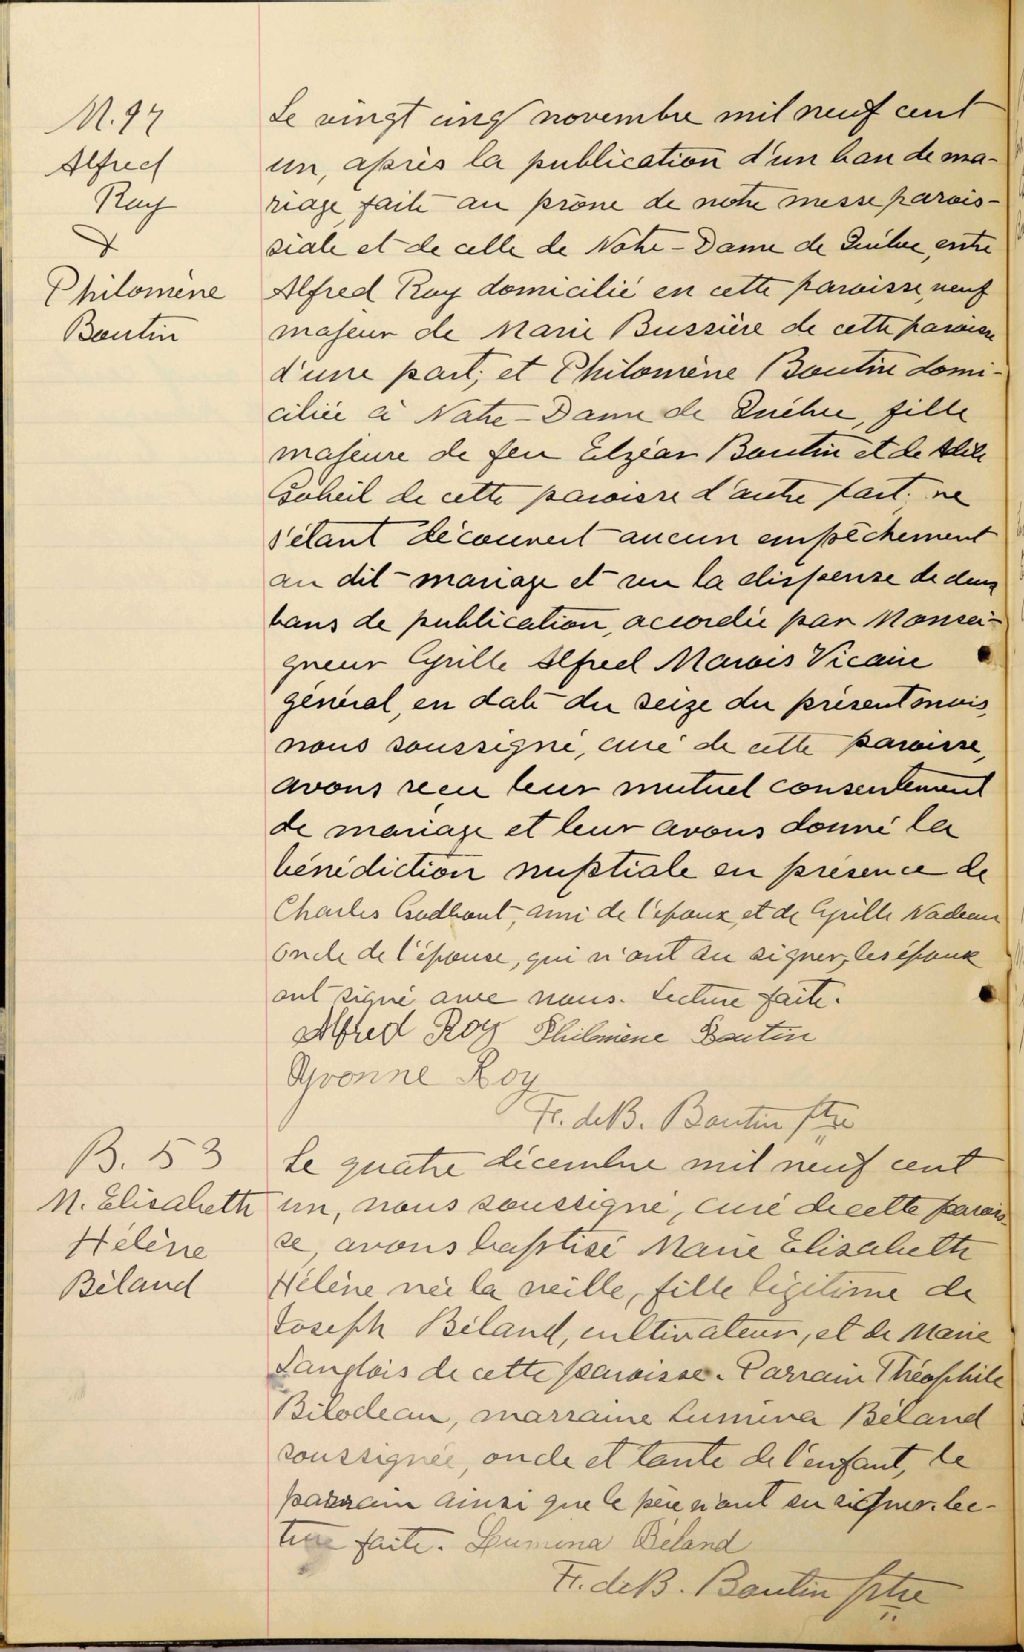 M. 97
Alfred
Roy
&
Philomène
Boutin
Le vingt cinq novembre mil neuf cent
un, après la publication d'un ban de ma-
riage, faite au prône de notre messe parois-
siale et de celle de Notre-Dame de Québec, entre
Alfred Roy domicilié en cette paroisse, veuf
majeur de Marie Bussière de cette paroisse
d'une part; et Philomène Boutin domi-
ciliée à Notre-Dame de Québec, fille
majeure de feu Elzéar Boutin et de Adèle
Goheil de cette paroisse d'autre part; ne
s'étant découvert aucun empêchement
au dit mariage et vu la dispense de deux
bans de publication, accordée par Monsei-
gneur Cyrille Alfred Marois Vicaire
général, en date du seize du présent mois,
nous soussigné, curé de cette paroisse,
avons reçu leur mutuel consentement
de mariage et leur avons donné la
bénédiction nuptiale en présence de
Charles Godbout, ami de l'époux, et de Cyrille Nadeau
oncle de l'épouse, qui n'ont su signer, les époux
ont signé avec nous. Lecture faite.
Alfred Roy Philomène Boutin
Yvonne Roy
Fr. de B. Boutin ptre
B. 53
M. Elisabeth
Hélène
Béland
Le quatre décembre mil neuf cent
un, nous soussigné, curé de cette parois-
se, avons baptisé Marie Elisabeth
Hélène née la veille, fille légitime de
Joseph Béland, cultivateur, et de Marie
Langlois de cette paroisse. Parrain Théophile
Bilodeau, marraine Lumina Béland
soussignée, oncle et tante de l'enfant, le
parrain ainsi que le père n'ont su signer. Lec-
ture faite. Lumina Béland
Fr. de B. Boutin ptre